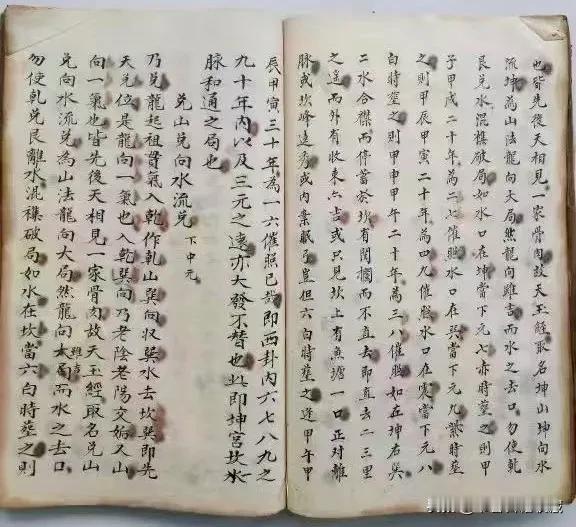 也皆先後天相見一家骨肉故天玉經取名坤山坤向水
流坤為山法龍向大局然龍向雖吉而水之去口勿使乾
艮兌水混襍破局如水口在坤當下元七赤時塟之則甲
子甲戌二十年為二七催照水口在巽當下元九紫時塟
之則甲辰甲寅二十年為四九催照水口在震當下元八
白時塟之則甲申甲午二十年為三八催照如在坤右巽
二水合襟而停蓄於坎有閗攔而不直去即直去二三里
之遥而外有收束亦吉或只見坎上有魚塘一口正對離
脉或坎峰遠秀或内案眠弓豈但六白時塟之逢甲午甲
辰甲寅三十年為一六催照已哉即西卦内六七八九之
九十年内以及三元之遠亦大發不替也此即坤宮坎水
脉和通之局也
兌山兌向水流兌 下中元
乃兌龍起祖貫氣入乾作乾山巽向收巽水去坎巽即先
天兌位是龍向一氣也入乾巽向乃老陰老陽交姤又山
向一氣也皆先後天相見一家骨肉故天玉經取名兌山
兌向水流兌為山法龍向大局然龍向雖吉而水之去口
勿使乾兌艮離水混襍破局如水在坎當六白時塟之則